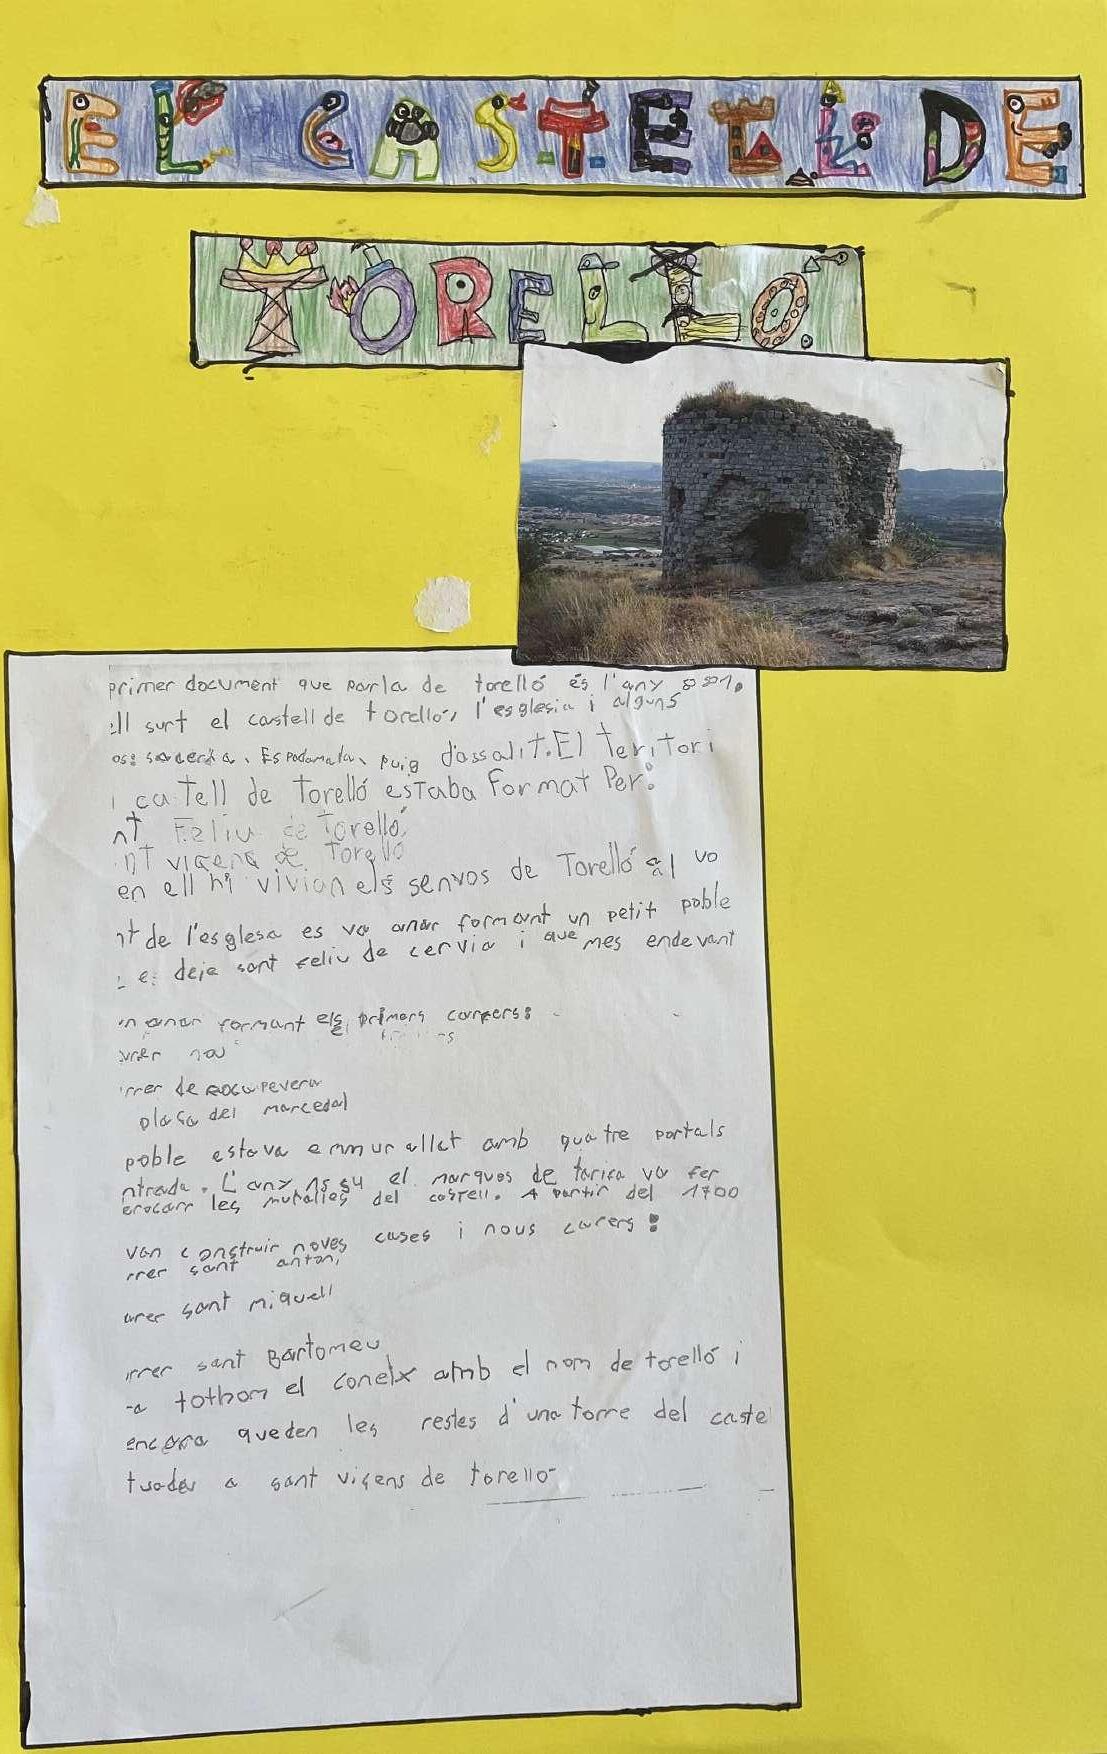 EL CASTELL DE
TORELLO.
primer document que parla de torelló és l'any 881.
ell surt el castell de torelló, l'esglesia i alguns
os: saderra, Espadamala, puig dassalit. El teritori
l ca tell de Torelló estaba Format Per:
nt Feliu de Torelló
int vicenç de Torelló
en ell hi vivian els senyos de Torelló al vo
nt de l'esglesa es va anar formant un petit poble
e: deia sant Feliu de cervia i que mes endevant
n anar formant els primers carrers:
urer nou
rrer de rocaprevera
plaça del marcedal
poble estava emmurallat amb quatre portals
ntrada. L'any 1554 el marques de tarifa va fer
erocarr les muralles del castell. A partir del 1700
van construir noves cases i nous carers:
rrer sant antoni
arer sant miquell
rrer sant Bartomeu
a tothom el coneix amb el nom de torelló i
encara queden les restes d'una torre del caste
tuada a sant viçens de torelló